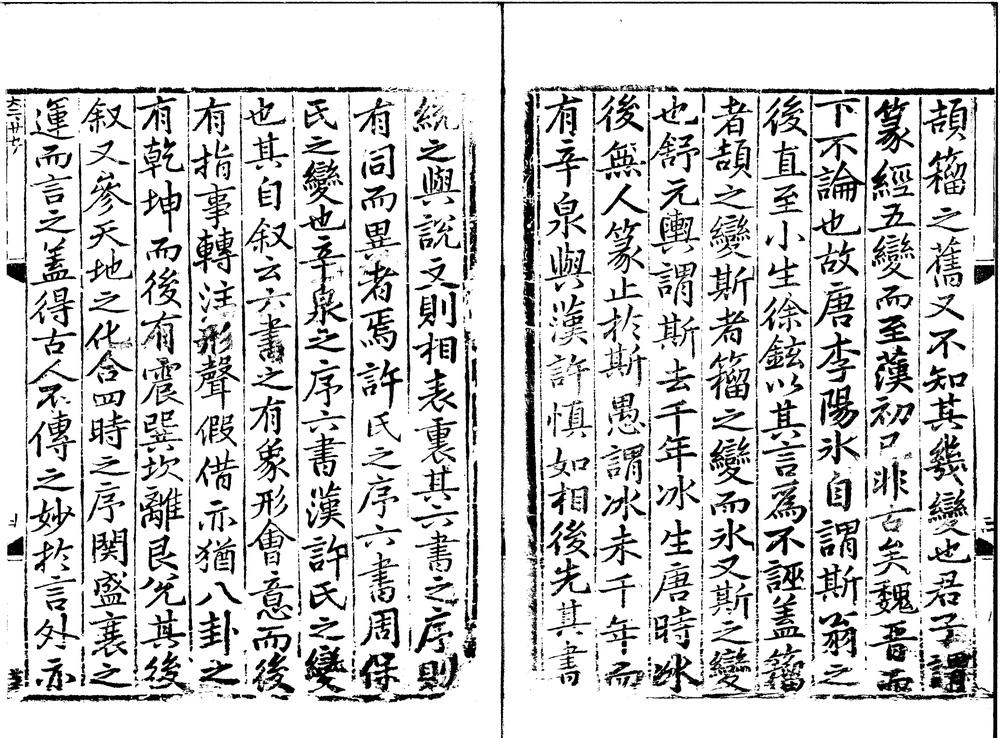 頡籀之舊又不知其幾變也君子謂
篆經五變而至漢初已非古矣魏晉而
下不論也故唐李陽氷自謂斯翁之
後直至小生徐鉉以其言爲不誣盖籀
者頡之變斯者籀之變而氷又斯之變
也舒元輿謂斯去千年冰生唐時冰
後無人篆止於斯愚謂冰未千年而
有辛泉與漢許慎如相後先其書
統之與說文則相表裏其六書之序則
有同而異者焉許氏之序六書周保
氏之變也辛泉之序六書漢許氏之變
也其自叙云六書之有象形會意而後
有指事轉注形聲假借亦猶八卦之
有乾坤而後有震巽坎離艮兌其後
叙又參天地之化合四時之序関盛衰之
運而言之盖得古人不傳之妙於言外亦